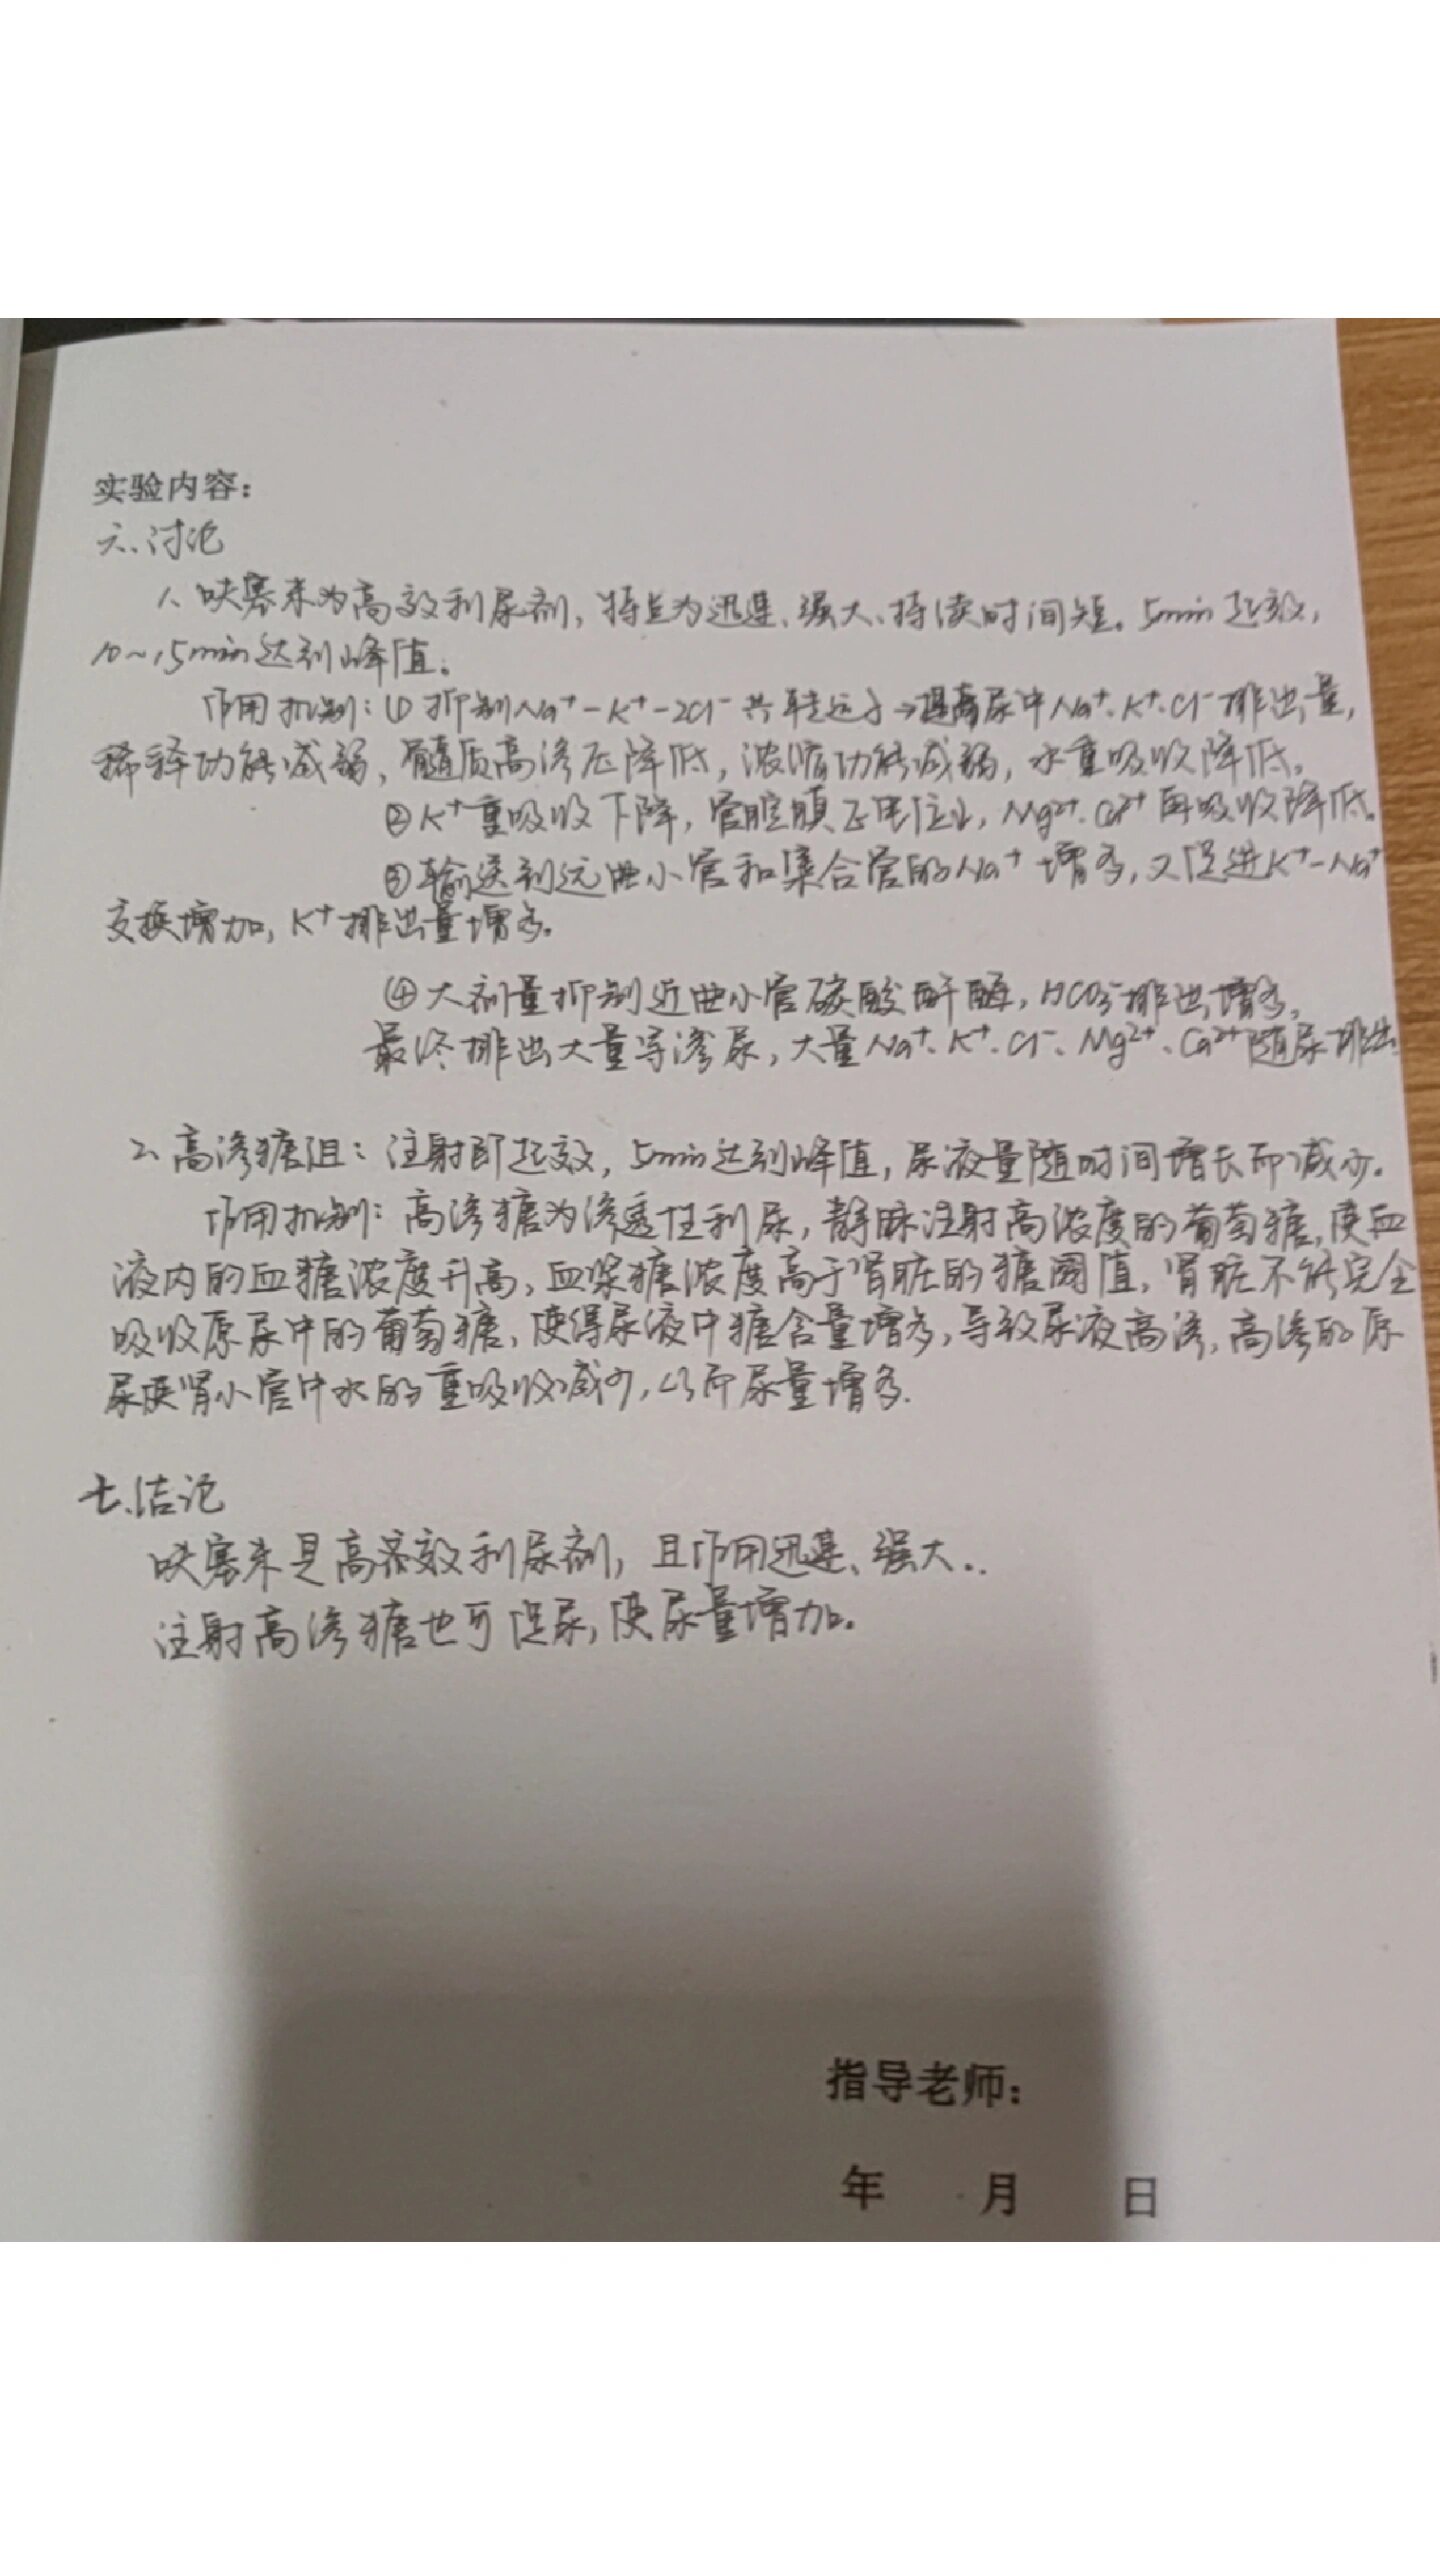 实验内容：
六、讨论
1、呋塞米为高效利尿剂，特点为迅速、强大、持续时间短。5min起效，
10~15min达到峰值。
作用机制：① 抑制Na⁺-K⁺-2Cl⁻共转运子→提高尿中Na⁺、K⁺、Cl⁻排出量，
稀释功能减弱，髓质高渗压降低，浓缩功能减弱，水重吸收降低。
②K⁺重吸收下降，管腔膜正电位↓，Mg²⁺、Ca²⁺再吸收降低。
③输送到远曲小管和集合管的Na⁺增多，又促进K⁺-Na⁺
交换增加，K⁺排出量增多。
④大剂量抑制近曲小管碳酸酐酶，HCO₃⁻排出增多，
最终排出大量等渗尿，大量Na⁺、K⁺、Cl⁻、Mg²⁺、Ca²⁺随尿排出
2、高渗糖组：注射即起效，5min达到峰值，尿液量随时间增长而减少。
作用机制：高渗糖为渗透性利尿，静脉注射高浓度的葡萄糖，使血
液内的血糖浓度升高，血浆糖浓度高于肾脏的糖阈值，肾脏不能完全
吸收原尿中的葡萄糖，使得尿液中糖含量增多，导致尿液高渗，高渗的原
尿使肾小管中水的重吸收减少，从而尿量增多.
七、结论
呋塞米是高效利尿剂，且作用迅速、强大..
注射高渗糖也可促尿，使尿量增加。
指导老师：
年 月 日